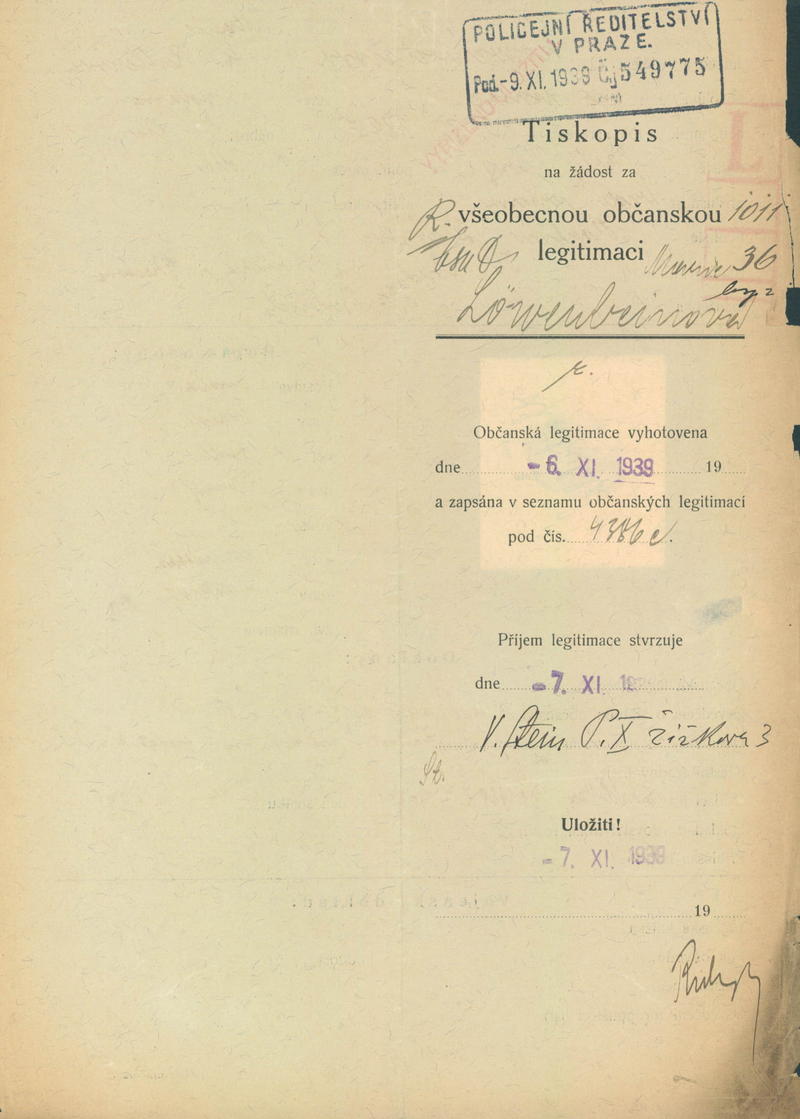 POLICEJNÍ ŘEDITELSTVÍ
V PRAZE.
Pod.-9. XI. 1939 Čj 549775
Tiskopis
L
na žádost za
R. všeobecnou občanskou 1011
legitimaci 36
Löwenbeinová
Občanská legitimace vyhotovena
dne - 6. XI. 1939 19
a zapsána v seznamu občanských legitimací
pod čís. 4386 c.
Příjem legitimace stvrzuje
dne - 7. XI 19
V. Stein P. X Žižkova 3
St.
Uložiti!
- 7. XI. 1939
19